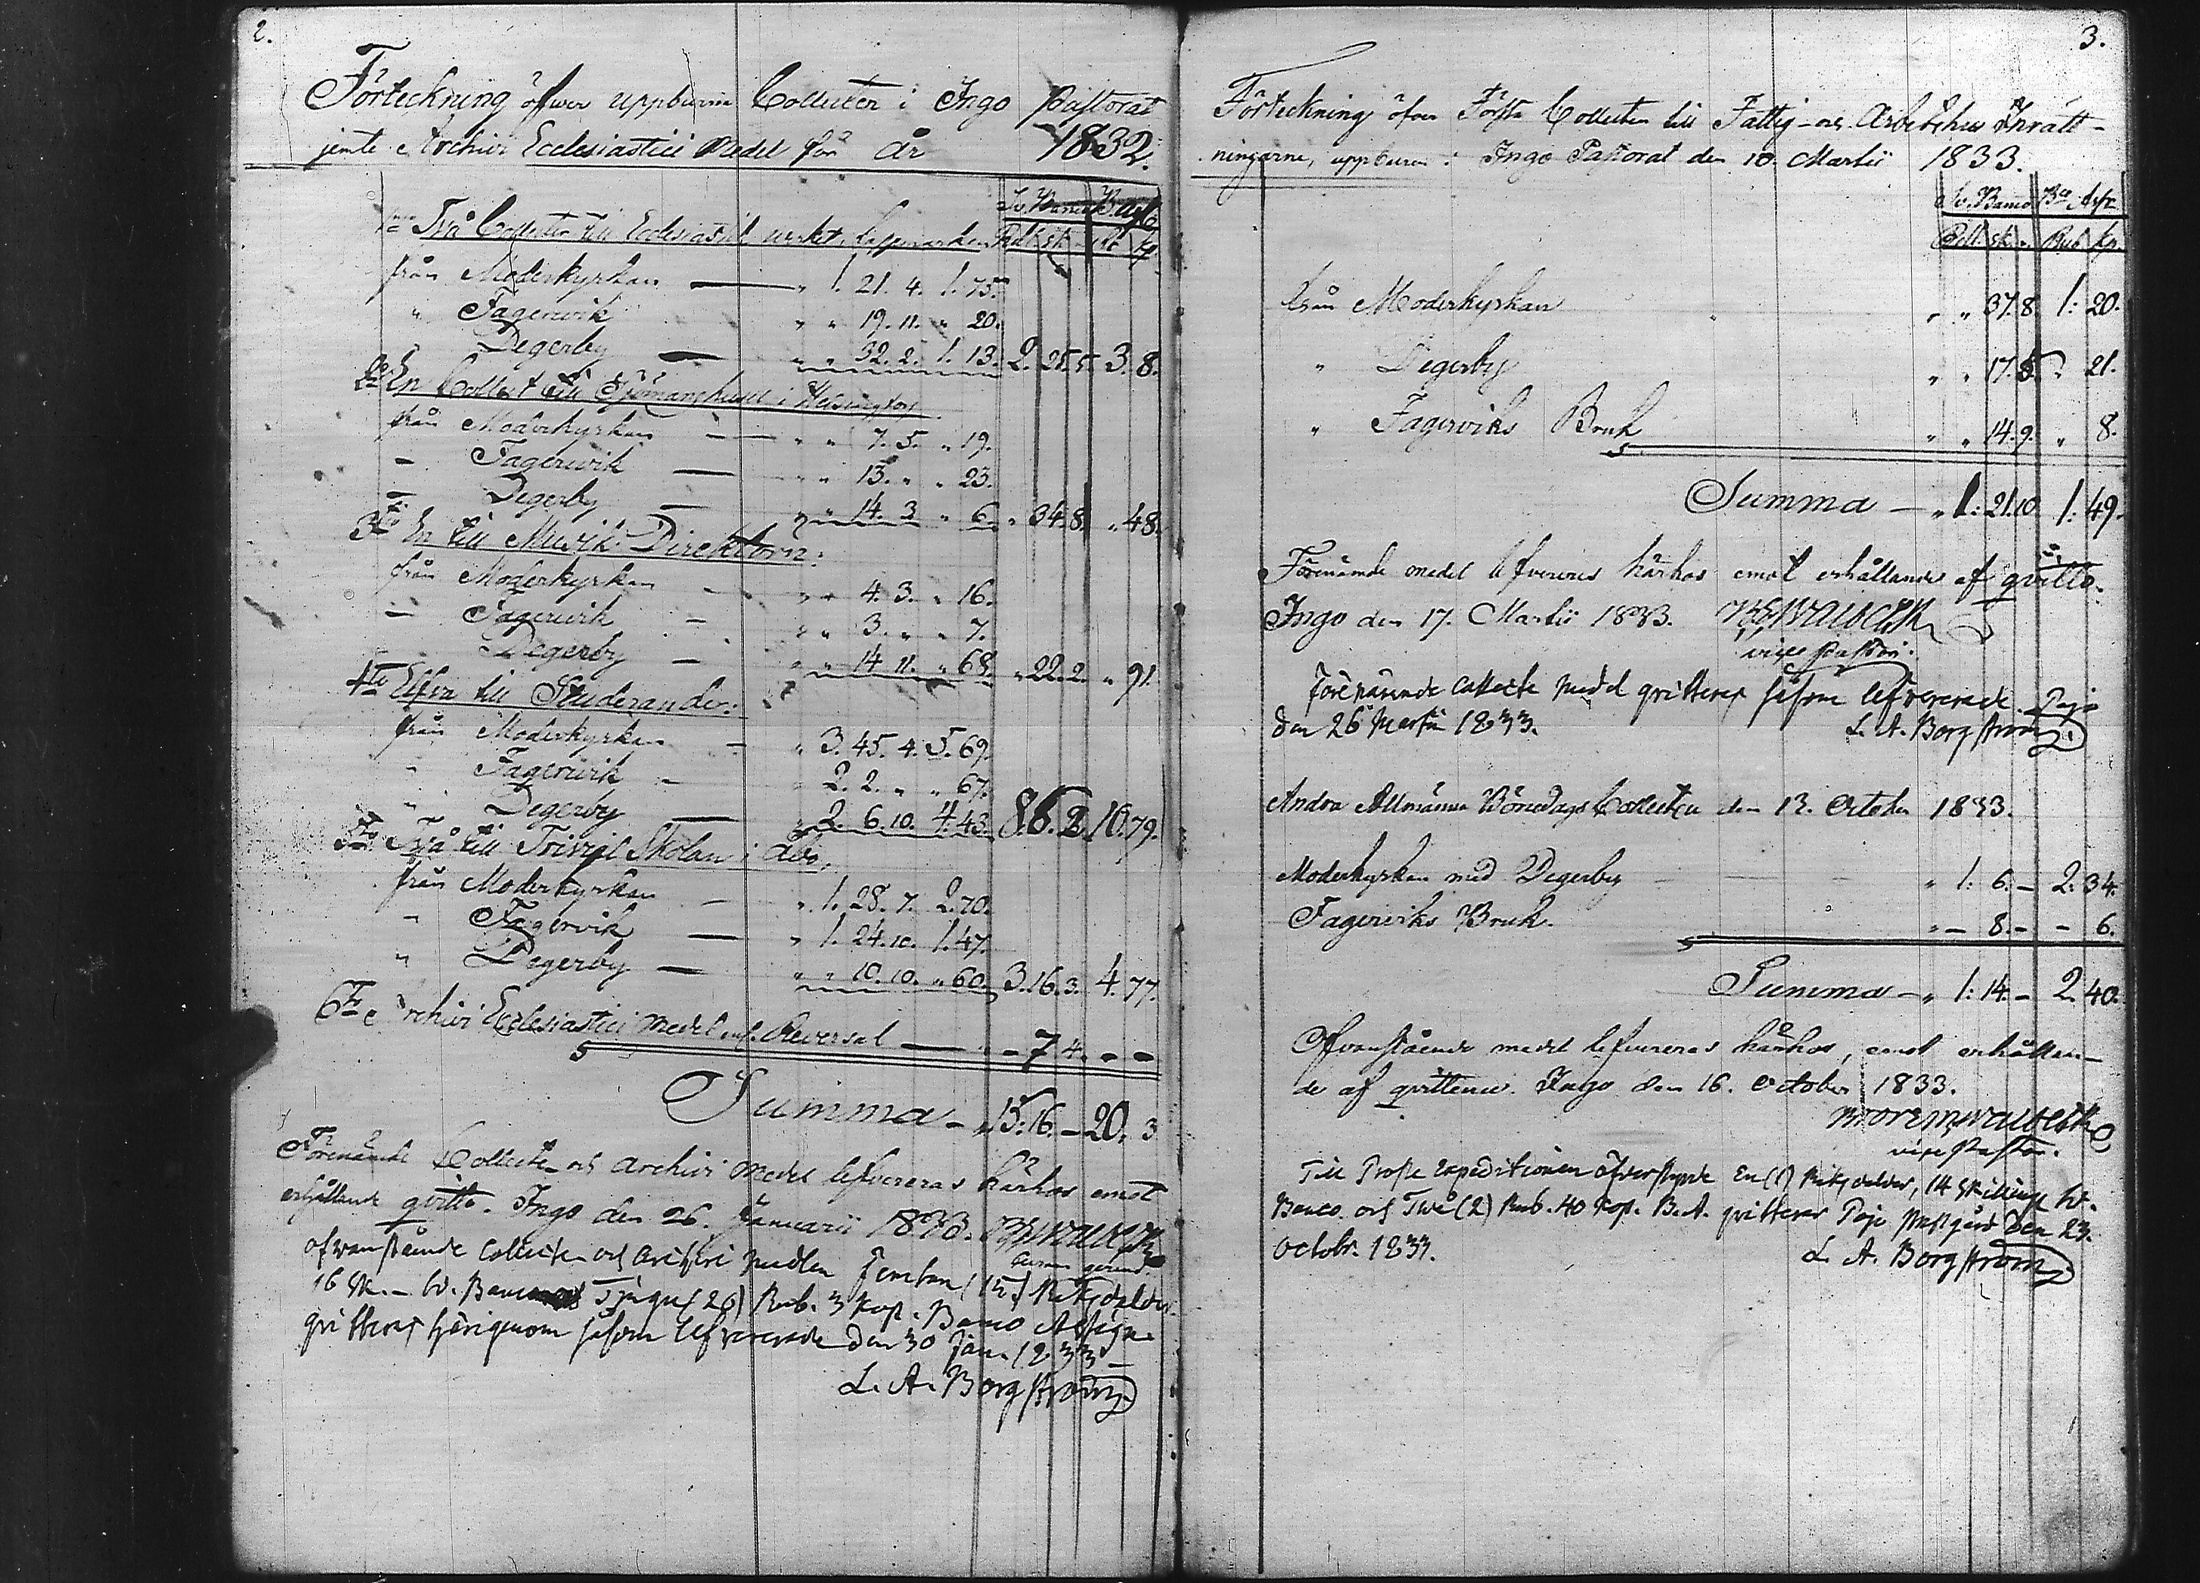 2.
Förteckning öfwer uppburna Collecter i Ingo Pastorat
jemte Archivi Ecclesiastici Medel för År 1832.
Sv. Banco
1ma Två Collecter till Ecclesiastik verket i Lappmarken Rdl sk
från Moderkyrkan — " 1. 21. 4. 1. 75.
" Fagervik " " 19. 11. " 20.
Degerby — " " 32. 2. 1. 13. 2. 25. 5. 3. 8.
2do En Collect till Sjömanshuset i Helsingfors
från Moderkyrkan — " " 7. 5. " 19.
— Fagervik — " " 13. " " 23.
— Degerby — " " 14. 3. " 6. " 34. 8. " 48.
3tio En till Musik Direktorn:
från Moderkyrkan - " " 4. 3. " 16.
— Fagervik - " " 3. " " 7.
Degerby — " " 14. 11. " 68. " 22. 2. " 91.
4to Elfva till Studerander:
från Moderkyrkan — " 3. 45. 4. 5. 69.
" Fagervik - 2. 2. " " 67.
" Degerby — " 2. 6. 10. 4. 43. 8. 6. 2. 10. 79.
5to Två till Trivial Skolan i Åbo.
från Moderkyrkan — " 1. 28. 7. 2. 70.
" Fagervik — " 1. 24. 10. 1. 47.
" Degerby — " " 10. 10. " 60. 3. 16. 3. 4. 77.
6to Archivi Ecclesiastici medel enl. Reversal — " - 7 4. - -
Summa - " 15. 16. - 20. 3
Förenämde Collecte och Archivi Medel lefvereras härhos emot
erhållande qvitto. Ingo den 26. Januarii 1833.
ofvanstående Collecter och Archivi medlen Femton (15) Riksdaler
16 sk. - Sv. Banco och Tjugu (20) Rub. 3 Kop. Banco Assign.
qvitteras härigenom såsom lefvererade den 30 Jan. 1833 —
L. A. Borgström
3.
Förteckning öfver Första Collecten till Fattig- och Arbetshus Inrätt-
ningarne, uppburen i Ingo Pastorat den 10. Martii 1833.
Sv. Banco Bco Ass.
Rdl. sk. Rub. Kp.
från Moderkyrkan " " 37. 8. 1: 20.
" Degerby " " 17. 5. " 21.
" Fagerviks Bruk " " 14. 9. " 8.
Summa — " 1: 21. 10. 1: 49.
Förenämde medel lefvereres härhos emot erhållande af qvitto.
Ingo den 17. Martii 1833.
vice Pastor.
Förenämnde Collecte medel qvitteras såsom lefvererade. Pojo
den 26 Martii 1833. L. A. Borgström
Andra Allmänna Bönedags Collecten den 13. October 1833.
Moderkyrkan med Degerby " 1: 6. - 2: 34.
Fagerviks Bruk. " - 8. - - 6.
Summa — " 1: 14. - 2. 40.
Ofvanstående medel lefvereras härhos, emot erhållan-
de af qvittence. Ingo den 16. October 1833.
vice Pastor.
Till Prosts Expeditionen öfverstyrde En (1) Riksdaler, 14 skilling Sv.
Banco och Två (2) Rub. 40 Kop. B.A. qvitteras Pojo Prästgård den 23.
Octobr. 1833. L. A. Borgström